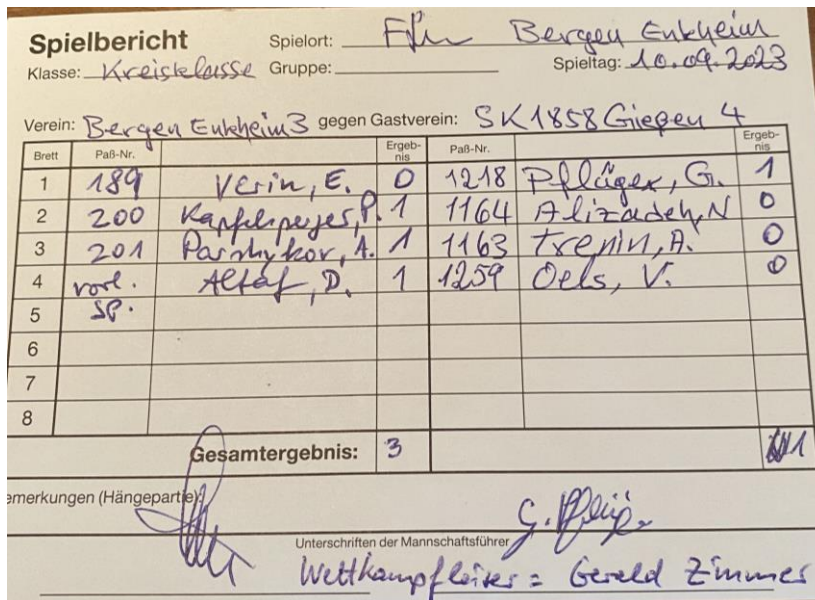 Spielbericht Spielort: Ffm Bergen Enkheim
Klasse: Kreisklasse Gruppe: Spieltag: 10.09.2023
Verein: Bergen Enkheim 3 gegen Gastverein: SK1858 Gießen 4
Brett Paß-Nr. Ergeb-nis Paß-Nr. Ergeb-nis
1 189 Verin, E. 0 1218 Pflüger, G. 1
2 200 P. 1 1164 Alizadeh, N 0
3 201 A. 1 1163 Trepin, A. 0
4 vorl. Altaf, D. 1 1259 Oels, V. 0
5 SP.
6
7
8
Gesamtergebnis: 3 1
emerkungen (Hängepartie):
Unterschriften der Mannschaftsführer
Wettkampfleiter = Gerald Zimmer